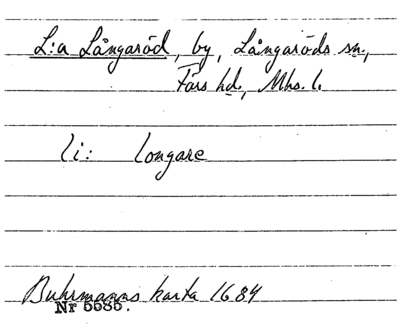 L:a Långaröd, by, Långaröds sn.,
Färs hd., Mhs. l.
li: Longare
Buhrmanns karta 1684
Nr 5585.